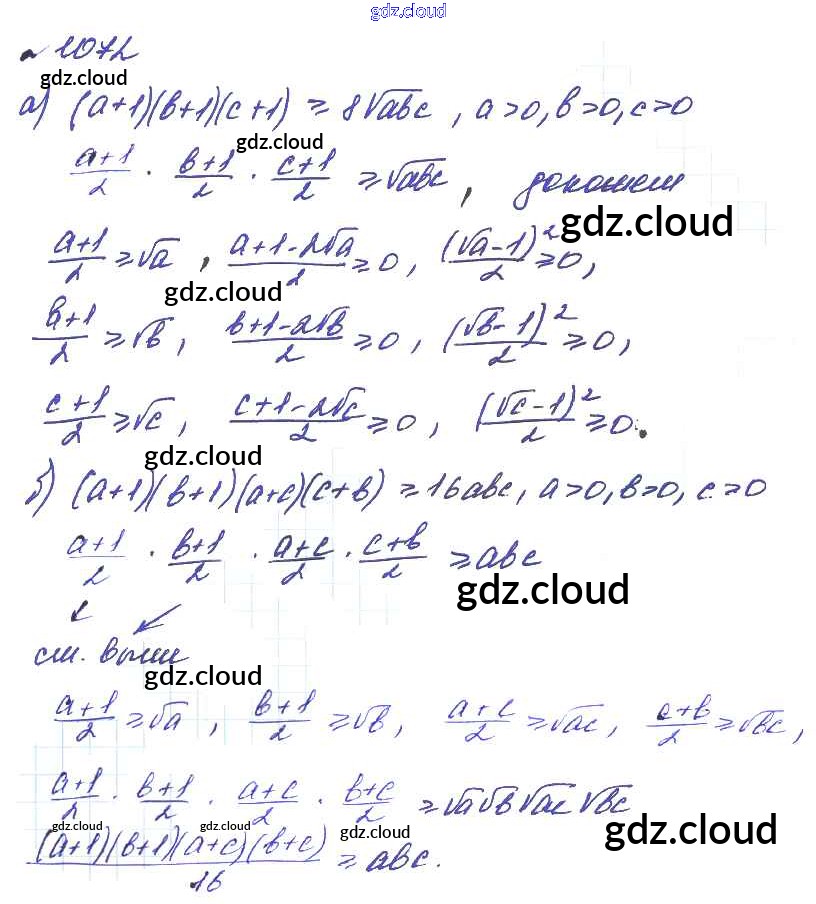 gdz.cloud
№ 1072
gdz.cloud
а) (a+1)(b+1)(c+1) ≥ 8√abc, a>0, b>0, c>0
gdz.cloud
(a+1)/2 · (b+1)/2 · (c+1)/2 ≥ √abc, докажем
gdz.cloud
(a+1)/2 ≥ √a, (a+1-2√a)/2 ≥ 0, (√a-1)²/2 ≥ 0,
gdz.cloud
(b+1)/2 ≥ √b, (b+1-2√b)/2 ≥ 0, (√b-1)²/2 ≥ 0,
(c+1)/2 ≥ √c, (c+1-2√c)/2 ≥ 0, (√c-1)²/2 ≥ 0.
gdz.cloud
б) (a+1)(b+1)(a+c)(c+b) ≥ 16abc, a>0, b>0, c>0
(a+1)/2 · (b+1)/2 · (a+c)/2 · (c+b)/2 ≥ abc
gdz.cloud
см. выше
gdz.cloud
(a+1)/2 ≥ √a, (b+1)/2 ≥ √b, (a+c)/2 ≥ √ac, (c+b)/2 ≥ √bc,
(a+1)/2 · (b+1)/2 · (a+c)/2 · (b+c)/2 ≥ √a√b√ac√bc
gdz.cloud gdz.cloud gdz.cloud gdz.cloud
(a+1)(b+1)(a+c)(b+c)/16 ≥ abc.